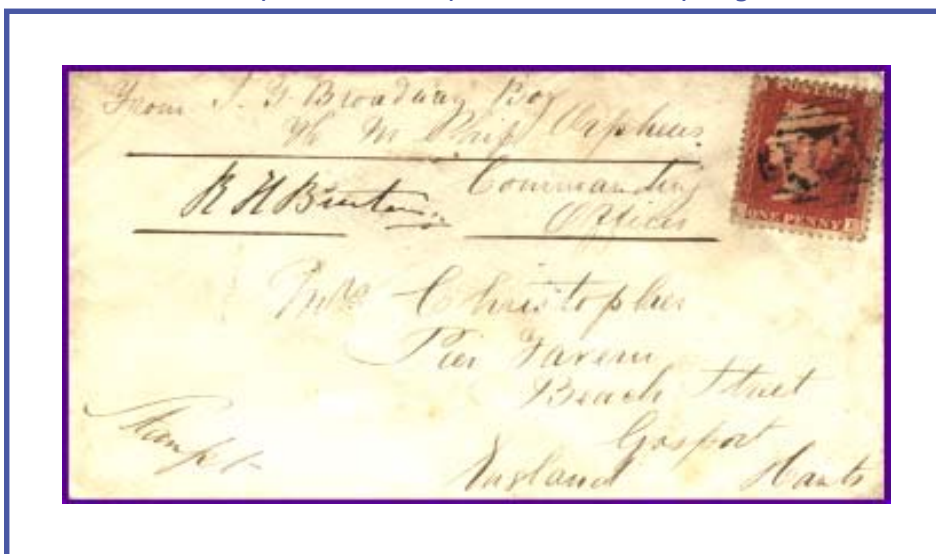 From J. G. Broadway Boy
H M Ship Orpheus.
Commanding
Officer
Mrs Christopher
Pier Tavern
Beach Street
Gosport
England Hants
ONE PENNY